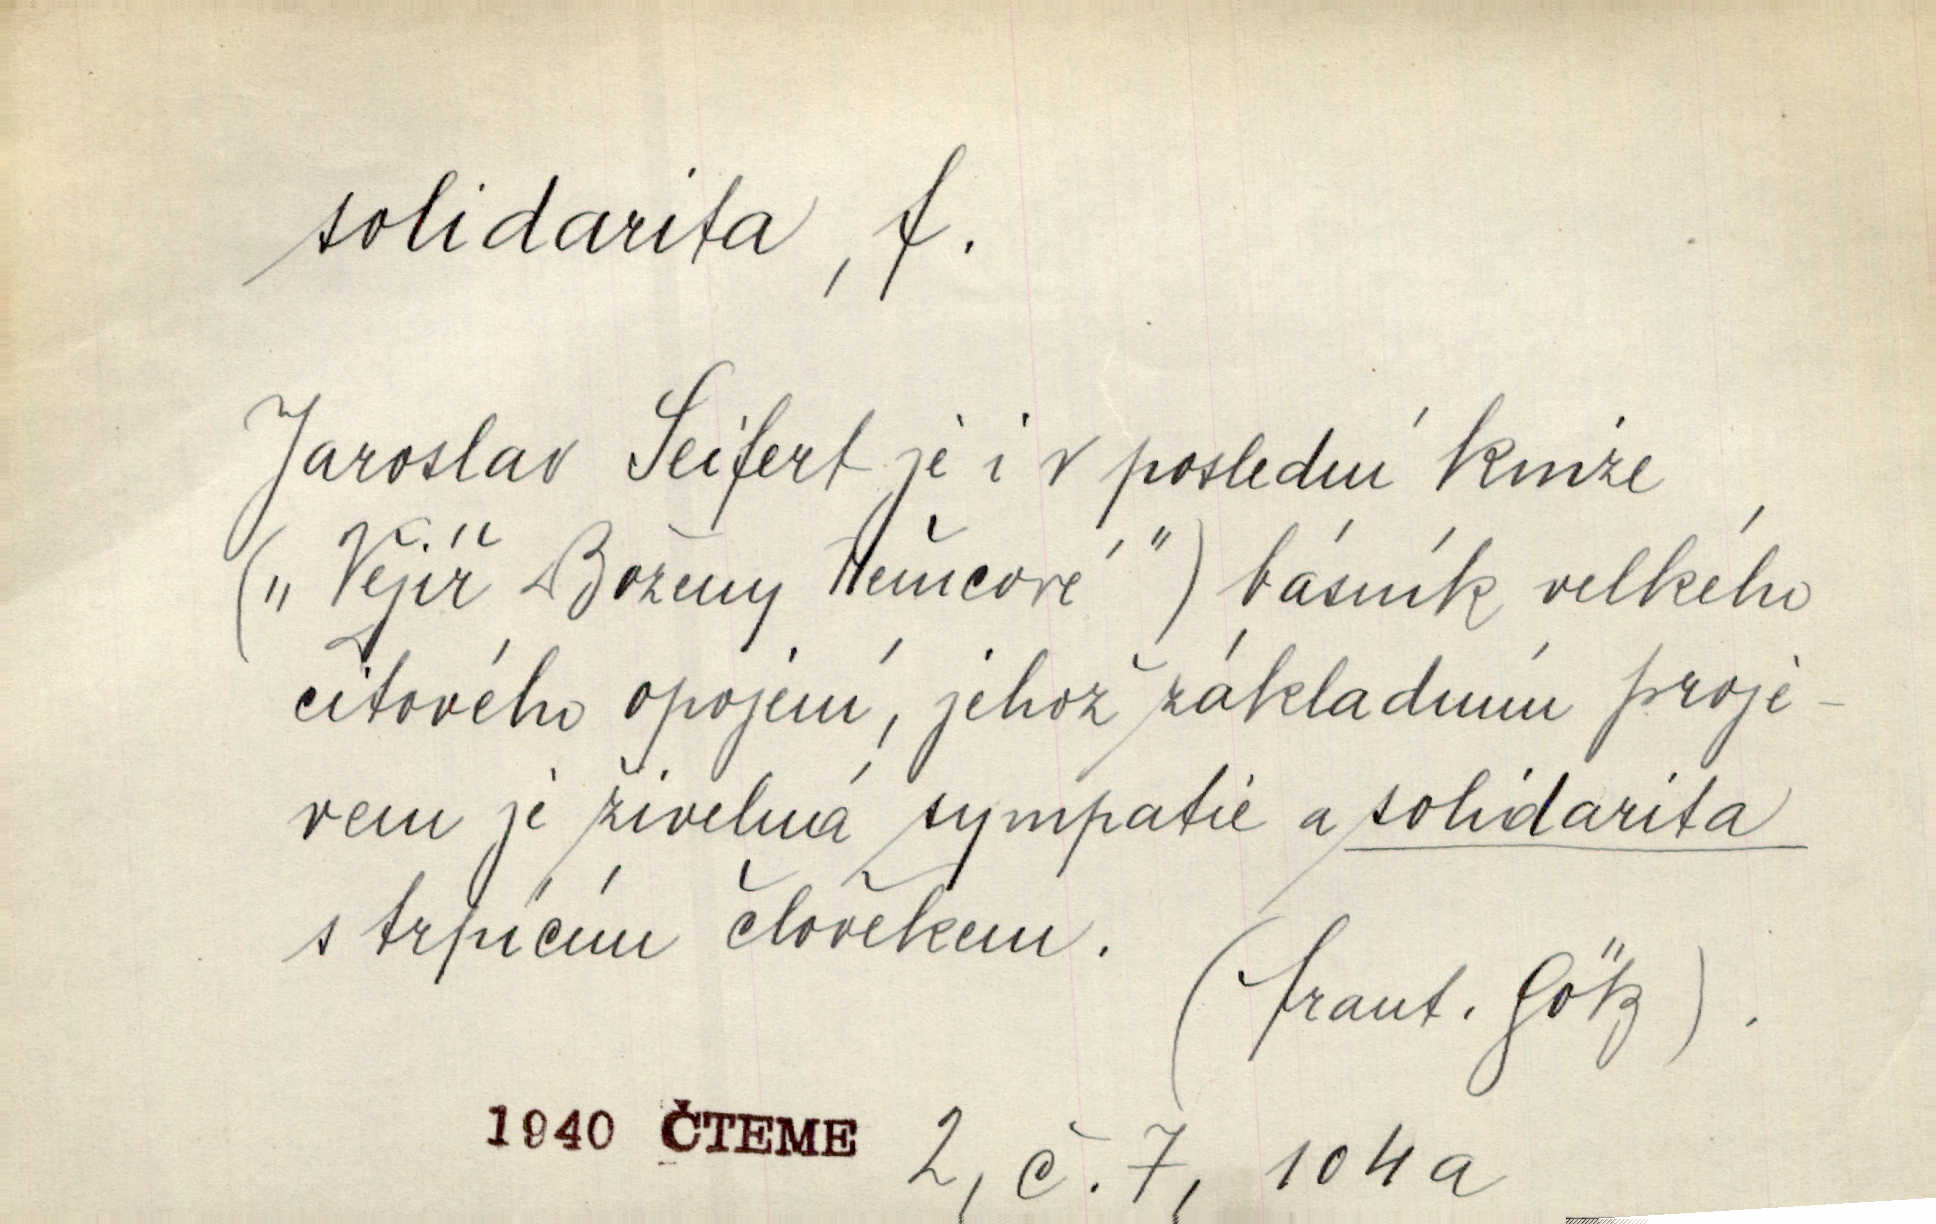 solidarita, f.
Jaroslav Seifert je i v poslední knize
(„Vějíř Boženy Němcové") básník velkého
citového opojení, jehož základním proje-
vem je živelná sympatie a solidarita
s trpícím člověkem.
(Frant. Götz).
1940 ČTEME 2, č. 7, 104a